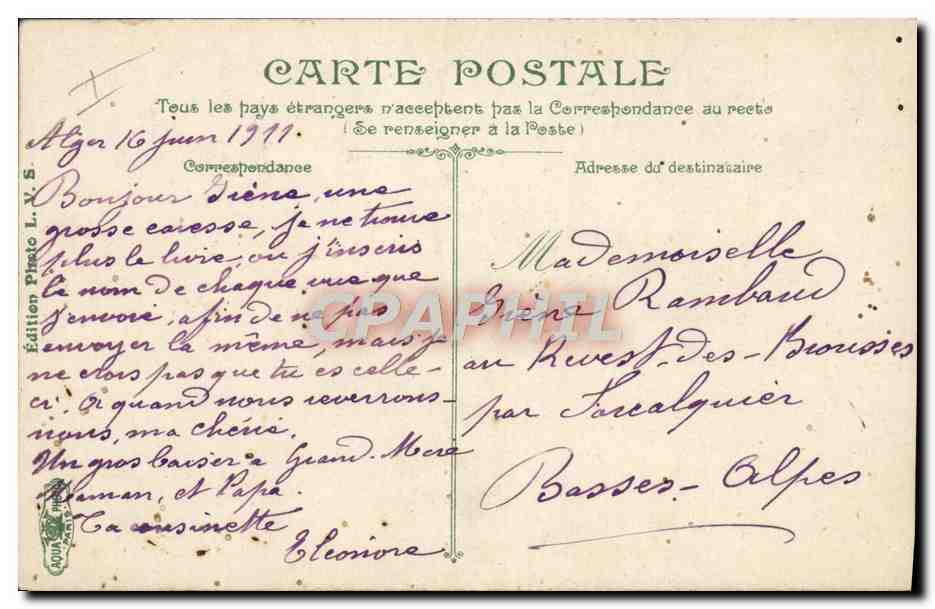 CARTE POSTALE
Tous les pays étrangers n'acceptent pas la Correspondance au recto
(Se renseigner à la Poste)
Alger 16 juin 1911
Correspondance
Bonjour Irène, une
grosse caresse, je ne trouve
plus le livre, ou j'inscris
le nom de chaque vue que
j'envoie, afin de ne pas
envoyer la même, mais je
ne crois pas que tu es celle-
ci. A quand nous reverrons-
nous, ma chérie.
Un gros baiser a Grand-Mere
Maman, et Papa.
Ta cousinette
Eleonore
Adresse du destinataire
Mademoiselle
Irène Rambaud
au Revest-des-Brousses
par Forcalquier
Basses-Alpes
Édition Photo L. V. S
AQUA PHOT
PARIS
CPAPHIL